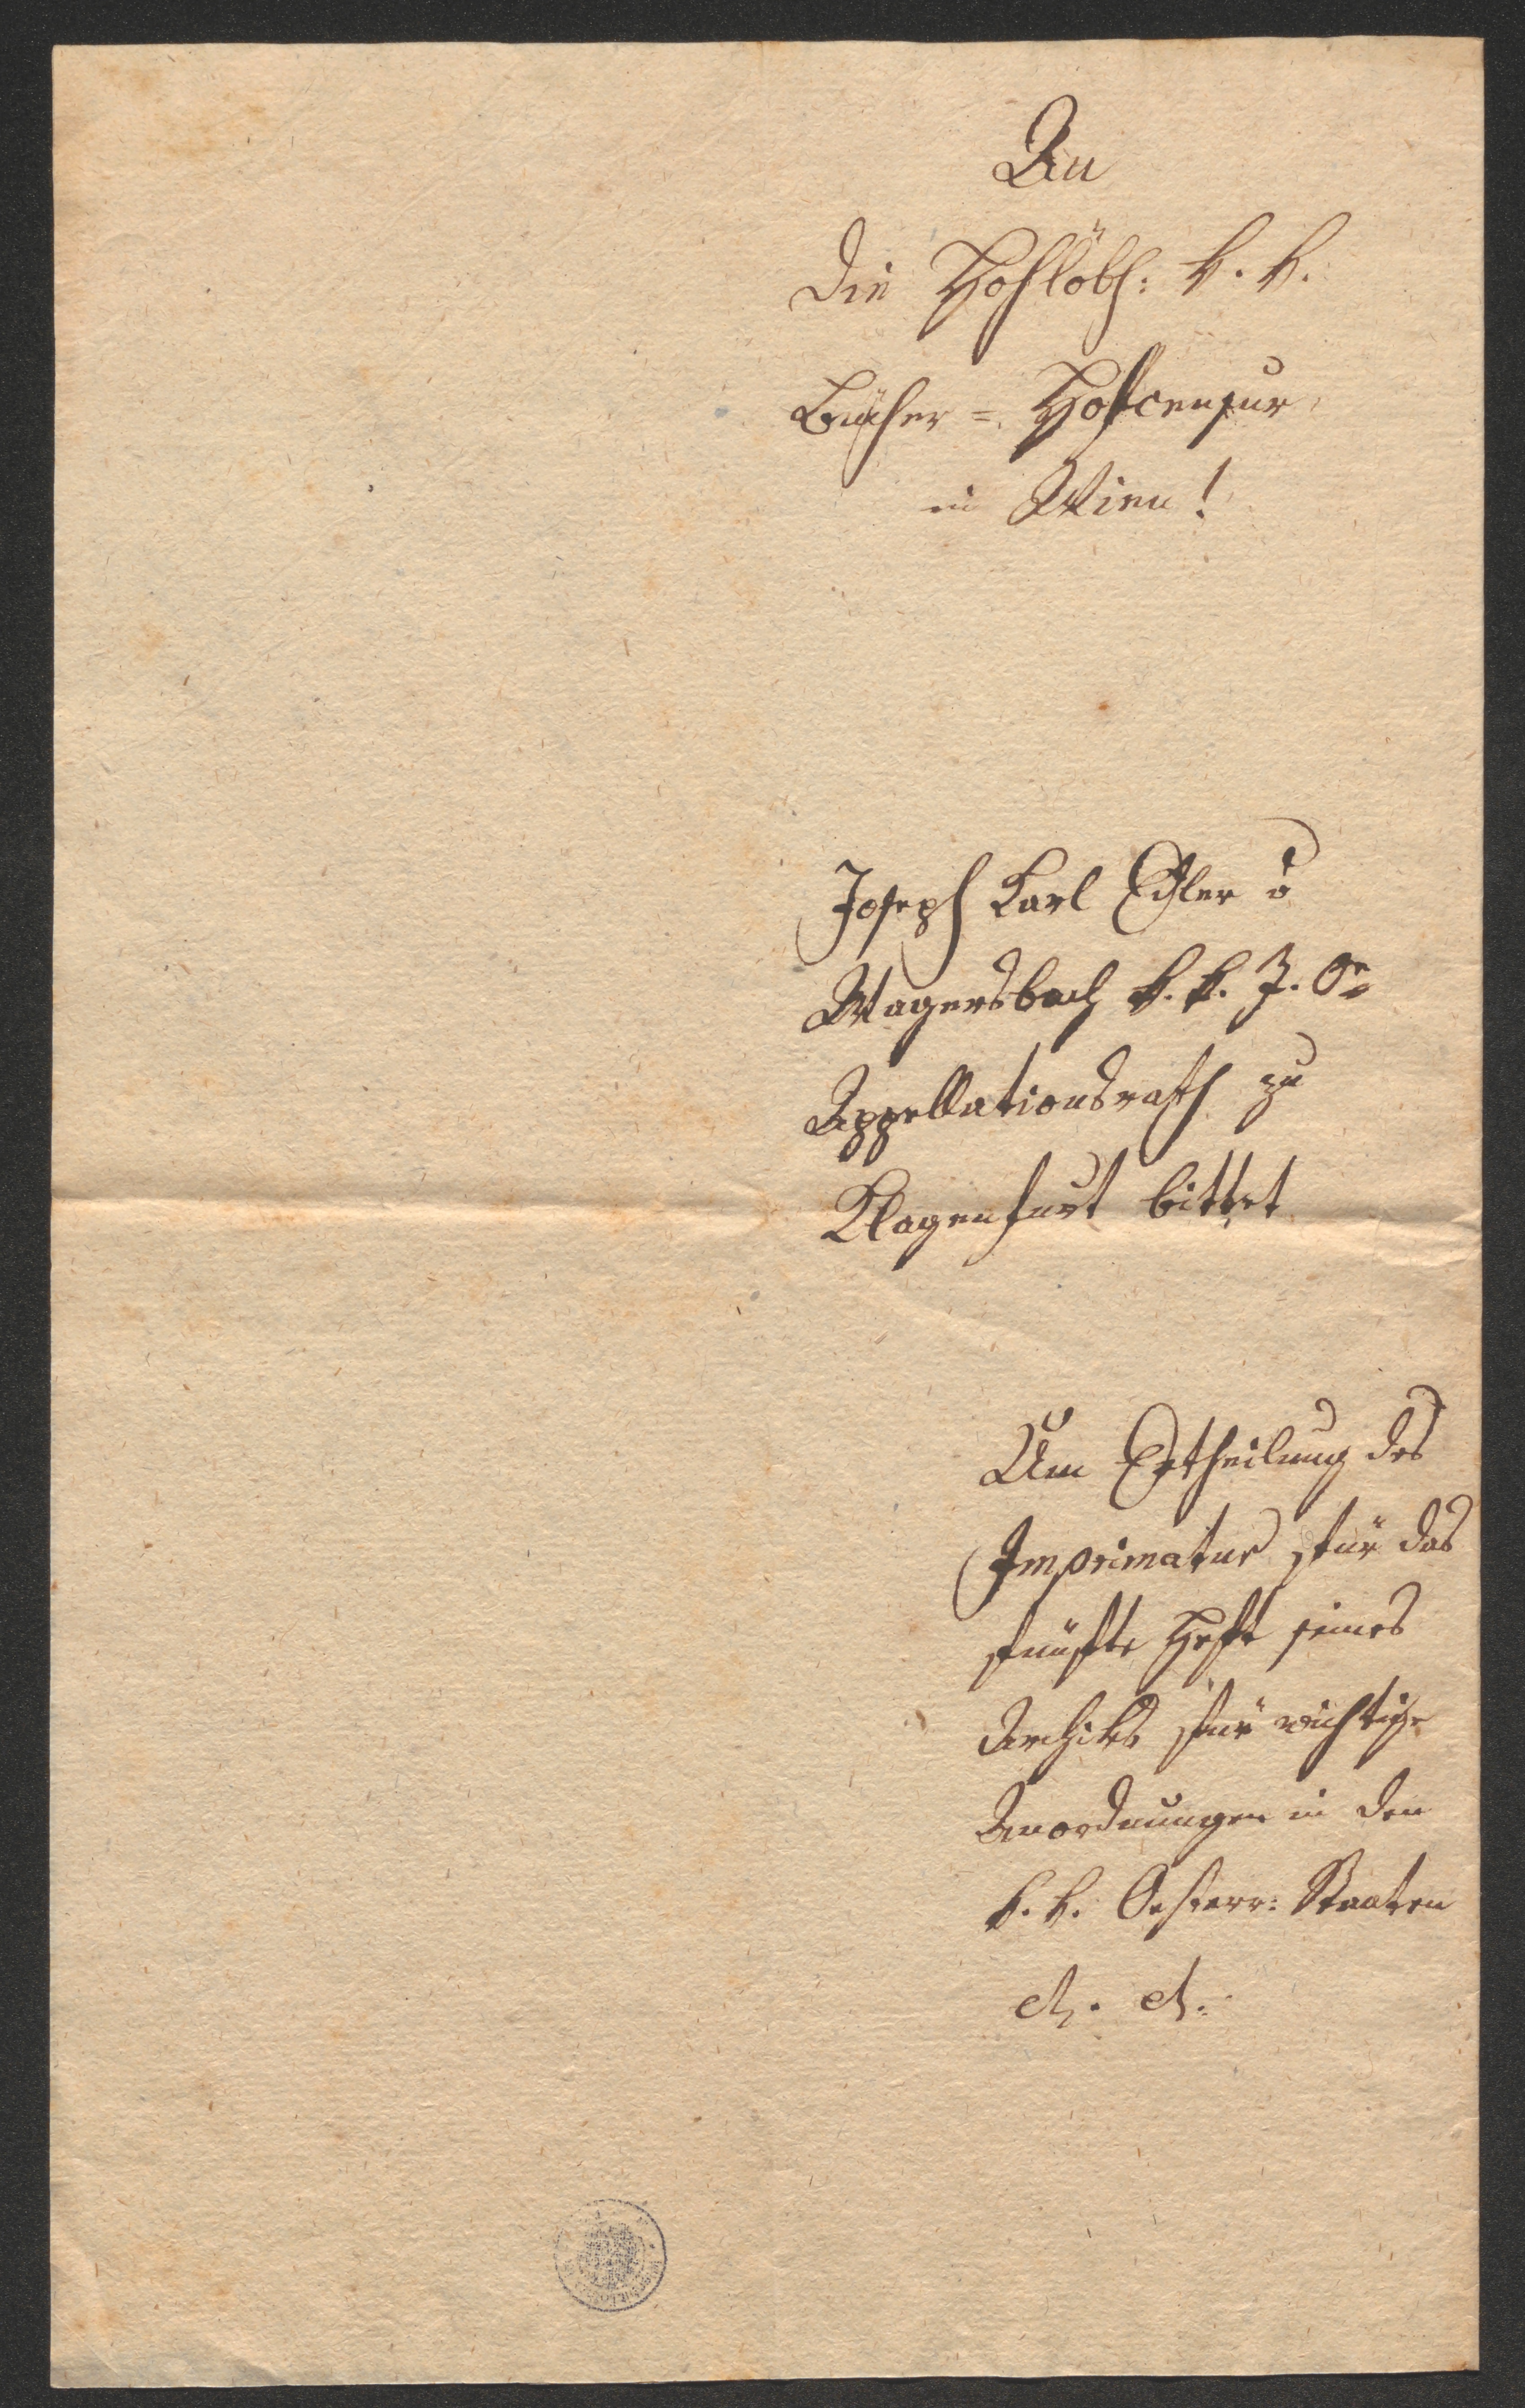 An
die Hochlöbl: k. k.
Bücher = Hofcensur
in Wien!
Joseph Karl Edler v
Wagersbach k. k. I. Oe
Appellationsrath zu
Klagenfurt bittet
Um Ertheilung des
Imprimatur für das
fünfte Heft seines
Archivs für wichtige
Anordnungen in den
k. k. Oesterr: Staaten
etc. etc.